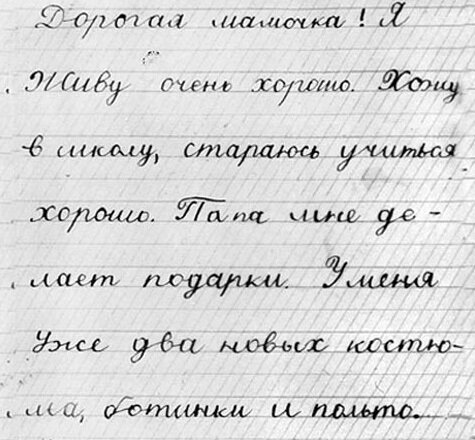 Дорогая мамочка! Я
живу очень хорошо. Хожу
в школу, стараюсь учиться
хорошо. Папа мне де-
лает подарки. У меня
уже два новых костю-
ма, ботинки и пальто.